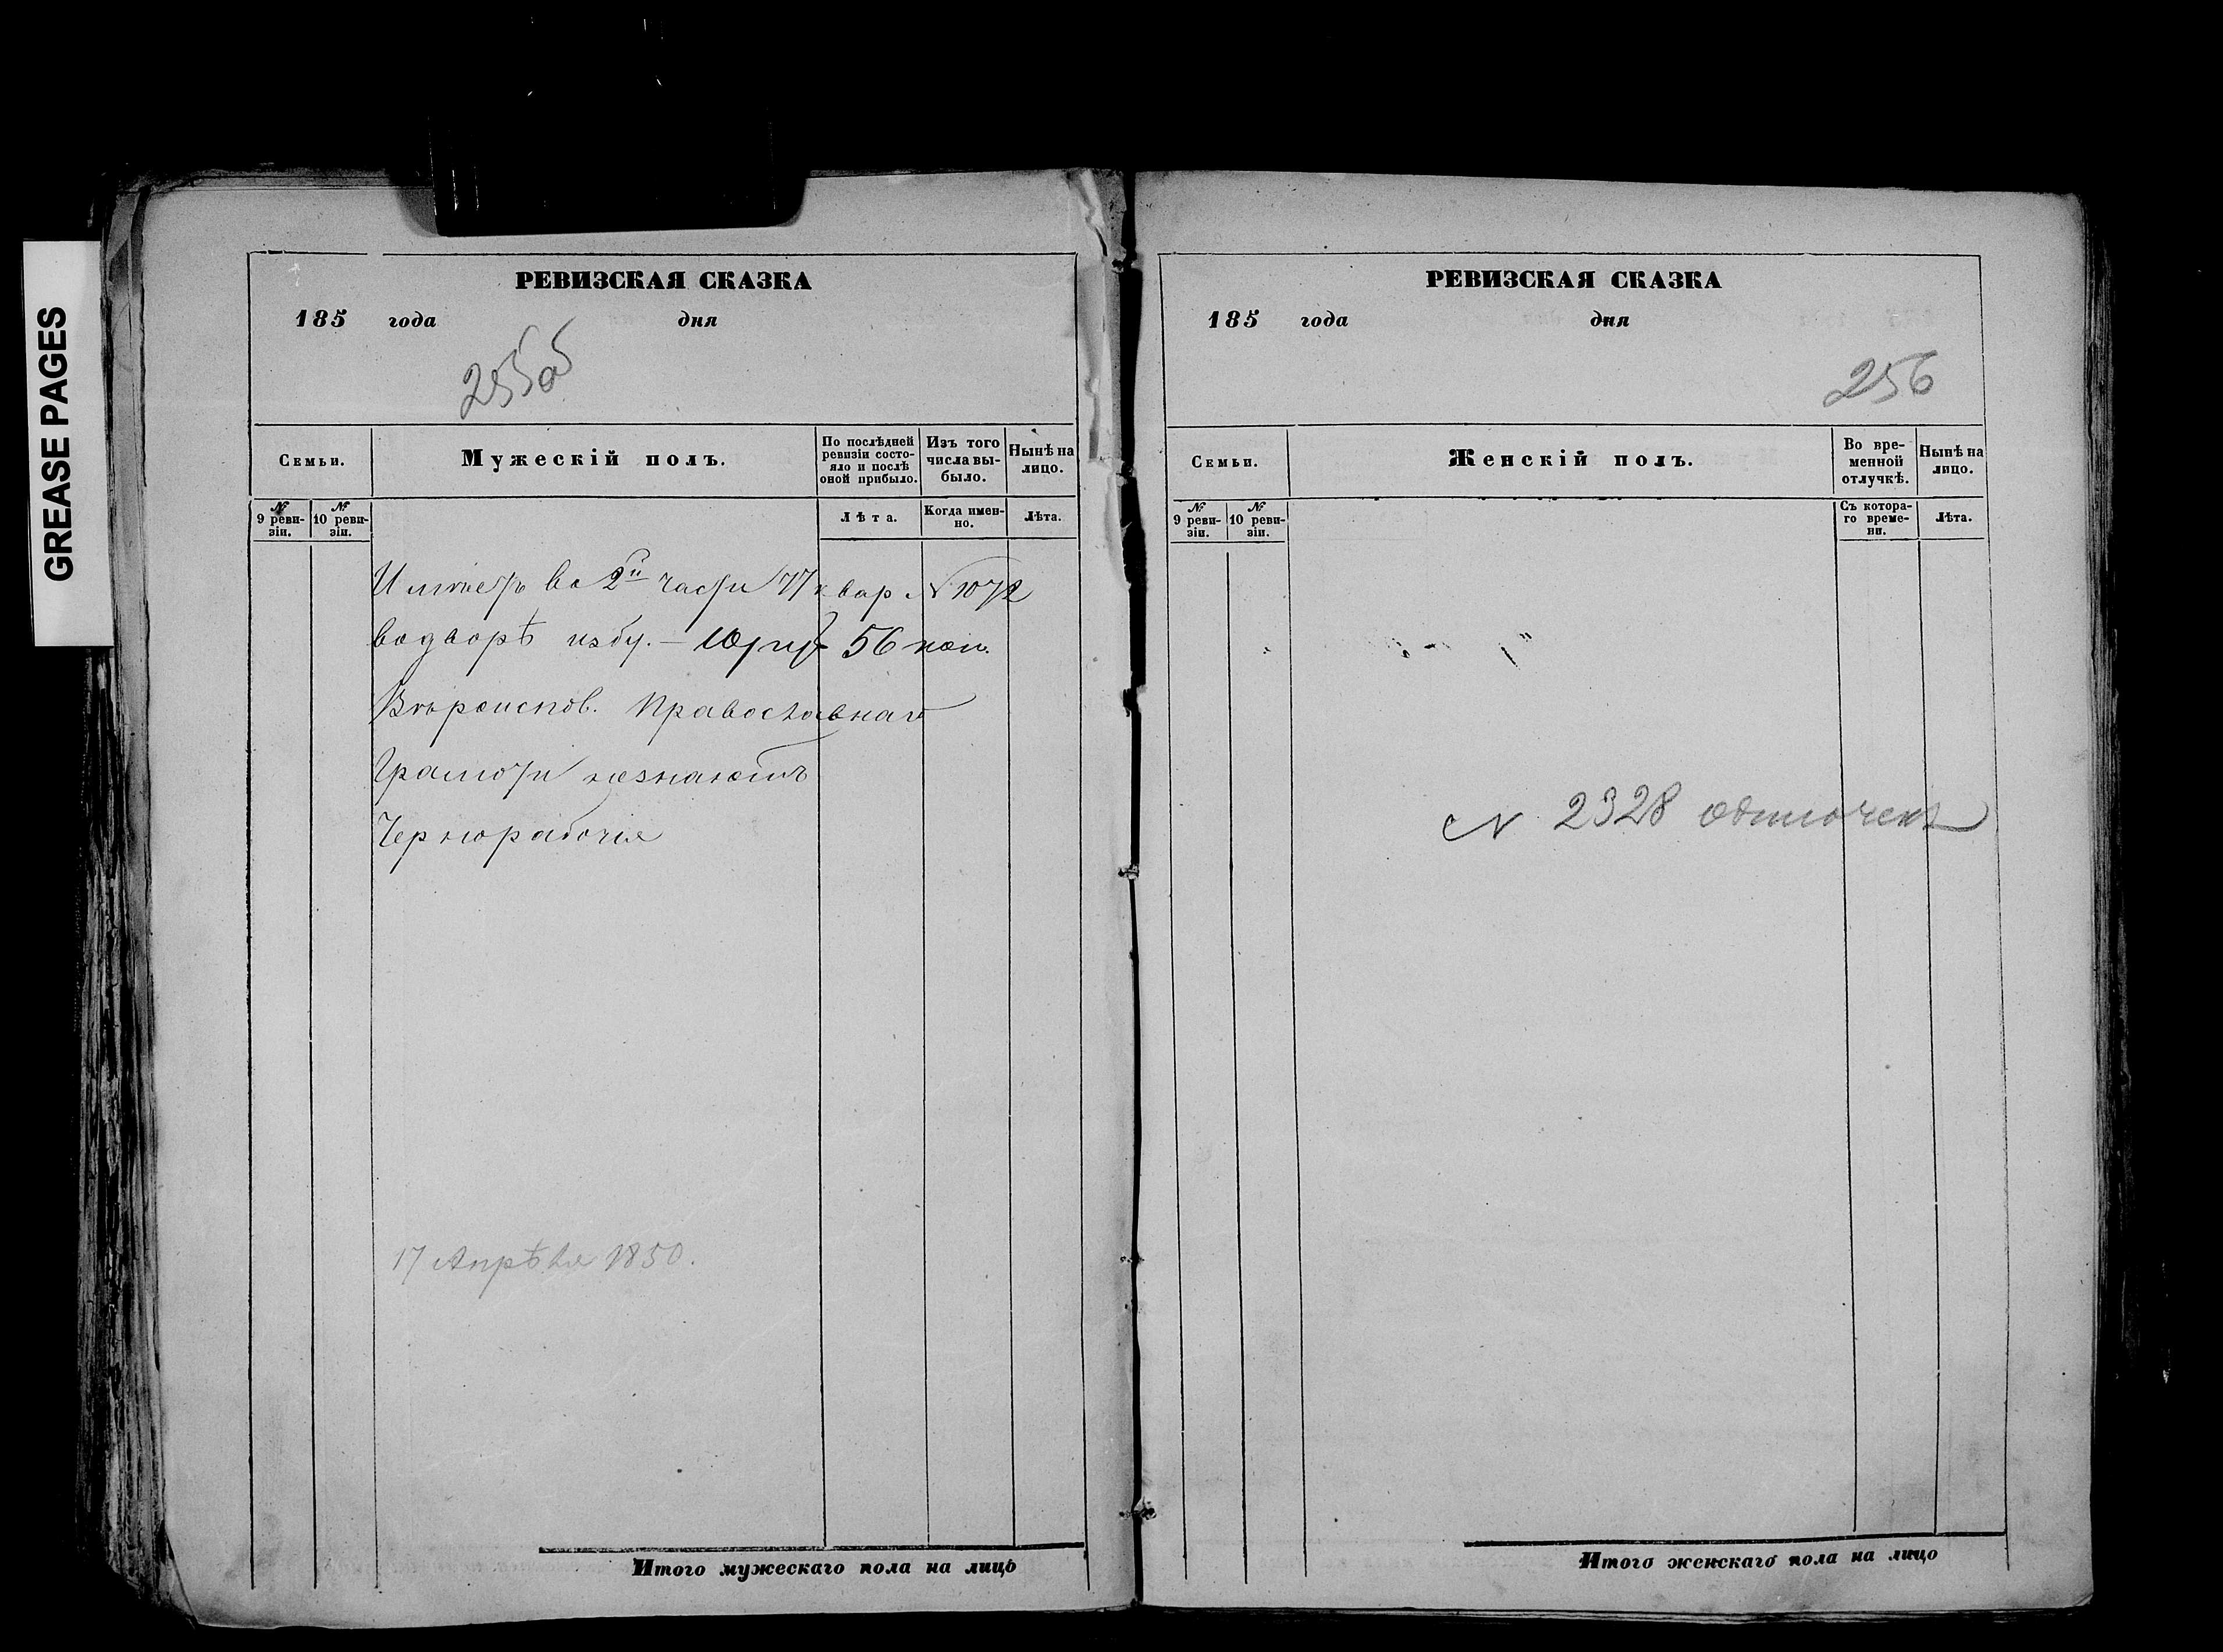 GREASE PAGES
РЕВИЗСКАЯ СКАЗКА
185 года дня
255об
Семьи.
Мужескій полъ.
По послѣдней ревизіи состояло и послѣ оной прибыло.
Изъ того числа выбыло.
Нынѣ на лицо.
№ 9 ревизіи.
№ 10 ревизіи.
Лѣта.
Когда именно.
Лѣта.
Имѣетъ во 2й части 77 квар № 1072
водворѣ избу. — 10 руб 56 коп.
Вѣроисповѣ. Православнаго
Грамоти незнаютъ
Чернорабочіе
17 Апрѣля 1850.
Итого мужескаго пола на лицо
РЕВИЗСКАЯ СКАЗКА
185 года дня
256
Семьи.
Женскій полъ.
Во временной отлучкѣ.
Нынѣ на лицо.
№ 9 ревизіи.
№ 10 ревизіи.
Съ котораго времени.
Лѣта.
№ 2328
Итого женскаго пола на лицо